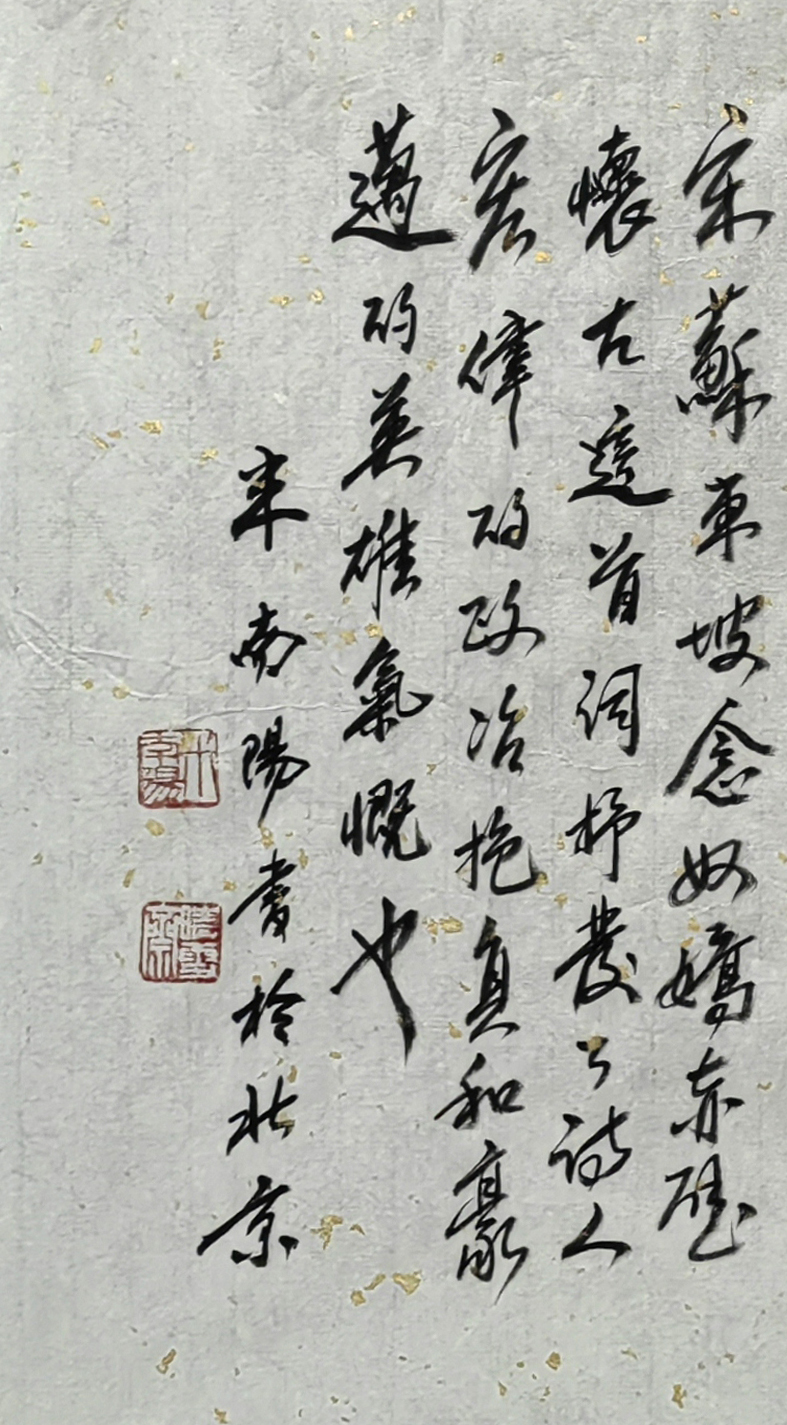 宋蘇東坡念奴嬌赤壁
懷古這首詞抒發了詩人
宏偉的政治抱負和豪
邁的英雄氣慨也
米南陽書於北京